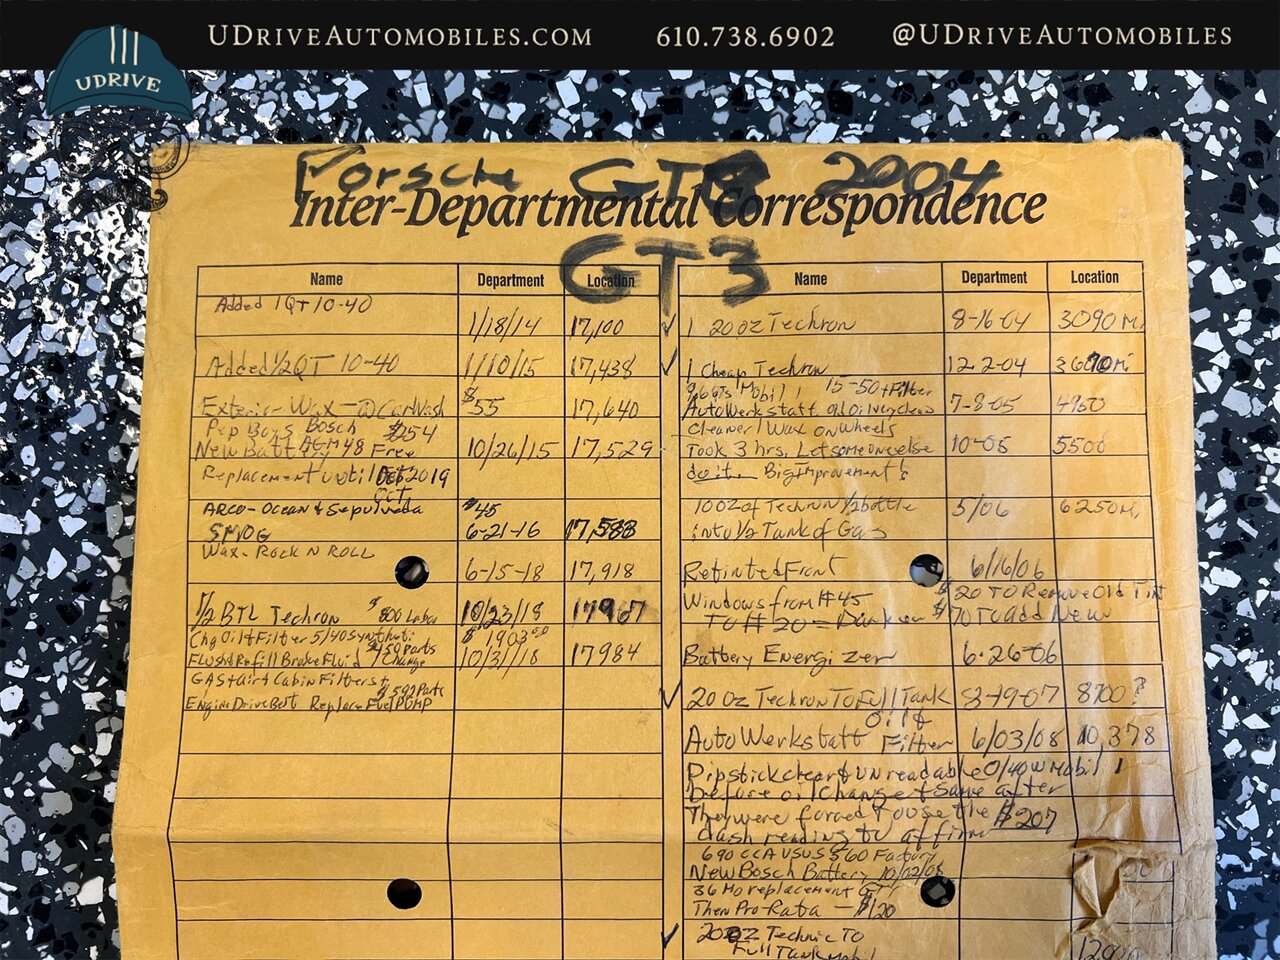 UDriveAutomobiles.com 610.738.6902 @UDriveAutomobiles
UDRIVE
Porsche GT3 2004
Inter-Departmental Correspondence
GT3
Name Department Location
Added 1QT 10-40
1/18/14 17,100
Added 1/2 QT 10-40 1/10/15 17,438
Exterior Wax - @ CarWash $55 17,640
Pep Boys Bosch
New Batt AGM 48 Free 10/26/15 17,529
Replacement until Oct 2019
Oct
ARCO-Ocean & Sepulveda $45
SMOG 6-21-16 17,583
Wax- Rock N ROLL
6-15-18 17,918
1/2 BTL Techron $800 Labor 10/23/18 17967
Chg Oil & Filter 5/40 Synthetic $1903.00
$450 Parts
Flush & Refill Brake Fluid Change 10/31/18 17984
GAS & Air & Cabin Filters &
$592 Parts
Engine Drive Belt Replace Fuel PUMP
Name Department Location
✓ 1 20oz Techron 8-16-04 3090 M.
✓ 1 Cheap Techron 12-2-04 3670 Mi
9.6 QTS Mobil 1 15-50 + Filter
AutoWerkstatt Old Oil very clean 7-8-05 4950
Cleaner/Wax on Wheels
Took 3 hrs. Let someone else 10-05 5500
do it. Big Improvement!
10 OZ of Techron 1/2 bottle 5/06 6250 M.
into 1/2 Tank of Gas
Retinted Front 6/16/06
Windows from #45 $20 TO Remove Old Tint
To #20 = Darker $70 To add New
Battery Energizer 6-26-06
✓ 20 oz Techron To Full Tank 3-19-07 8700?
Oil &
AutoWerkstatt Filter 6/03/08 10,378
Dipstick clear & unreadable 0/40W Mobil 1
Before oil Change & Same after
They were forced to use the $207
dash reading to affirm
690 CCA VSUS $60 Factory
New Bosch Battery 10/02/08
36 Mo replacement GTY
Then Pro-Rata - $120
✓ 20 oz Technic To
Full Tank